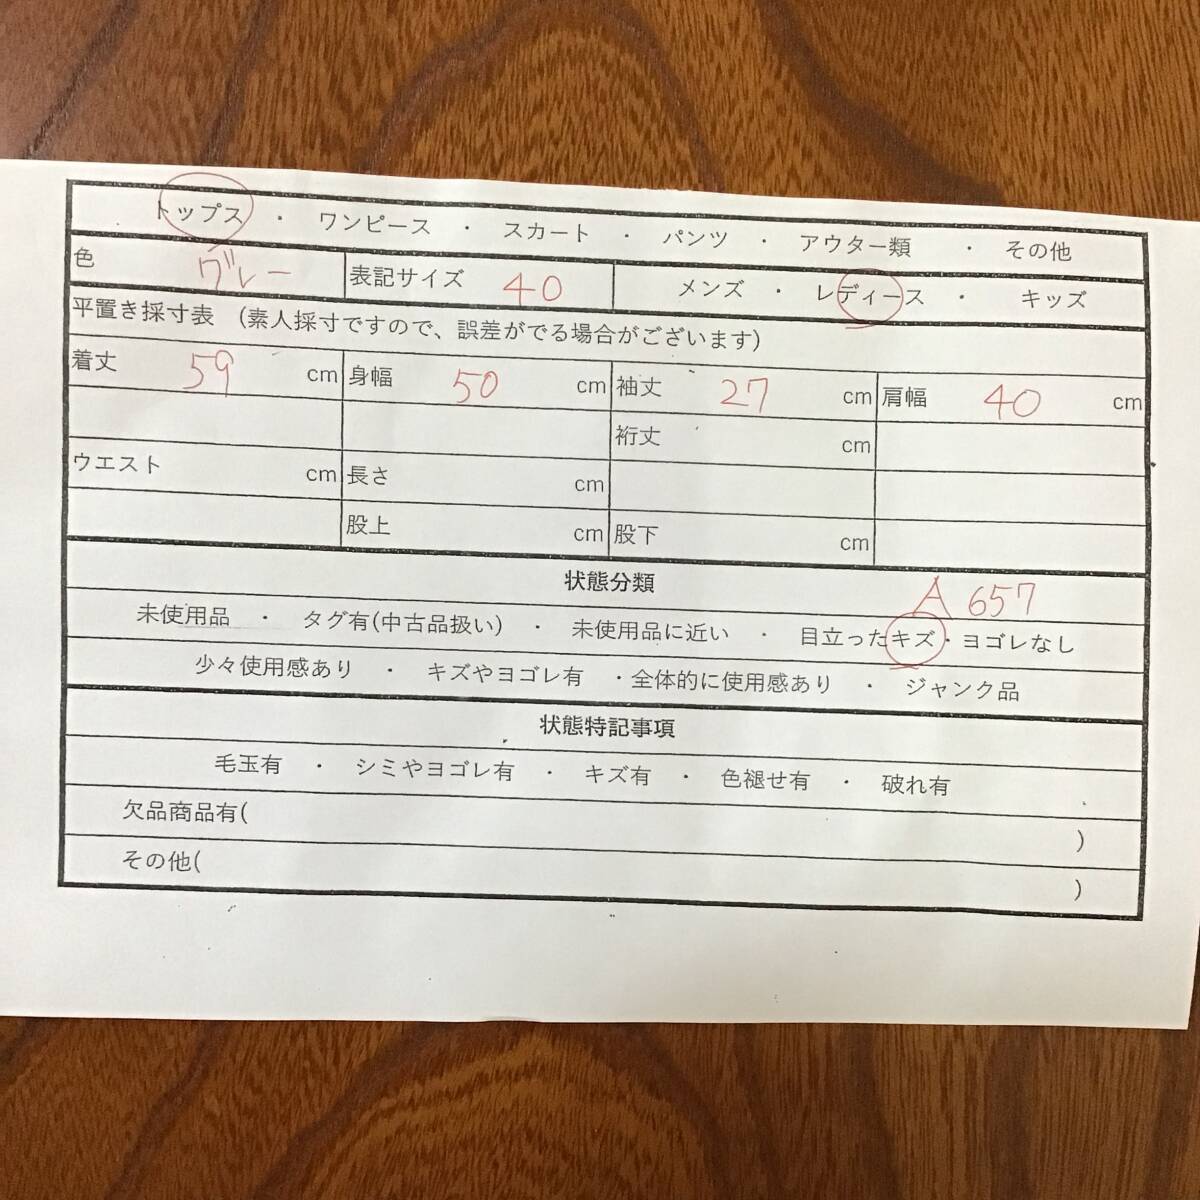 トップス ・ ワンピース ・ スカート ・ パンツ ・ アウター類 ・ その他
色 グレー 表記サイズ 40 メンズ ・ レディース ・ キッズ
平置き採寸表 (素人採寸ですので、誤差がでる場合がございます)
着丈 59 cm 身幅 50 cm 袖丈 27 cm 肩幅 40 cm
裄丈 cm
ウエスト cm 長さ cm
股上 cm 股下 cm
状態分類 A 657
未使用品 ・ タグ有(中古品扱い) ・ 未使用品に近い ・ 目立ったキズ・ヨゴレなし
少々使用感あり ・ キズやヨゴレ有 ・全体的に使用感あり ・ ジャンク品
状態特記事項
毛玉有 ・ シミやヨゴレ有 ・ キズ有 ・ 色褪せ有 ・ 破れ有
欠品商品有( )
その他( )